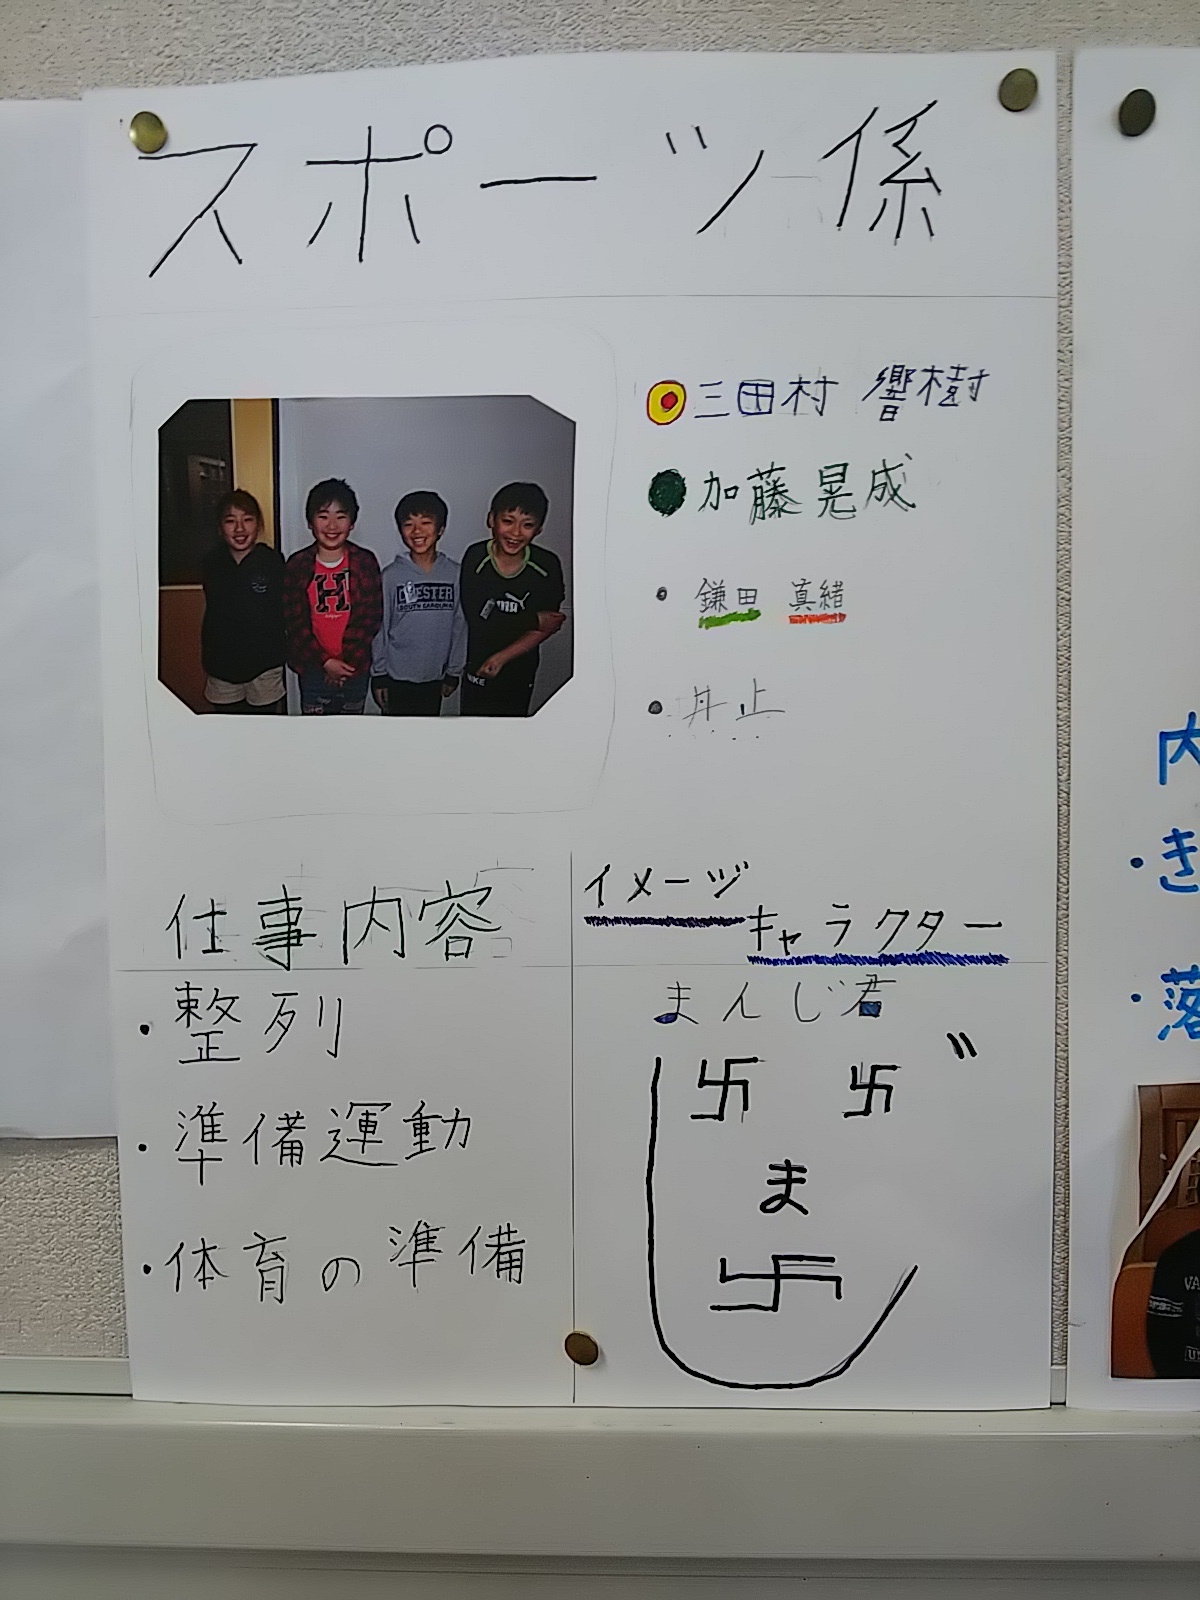 スポーツ係
三田村 響樹
加藤晃成
鎌田 真緒
井上
H
CHESTER
SOUTH CAROLINA
PUMA
NIKE
仕事内容
・整列
・準備運動
・体育の準備
イメージ
キャラクター
まんじ君
卐 卐 〃
ま
卐
内
・き
・落
VA